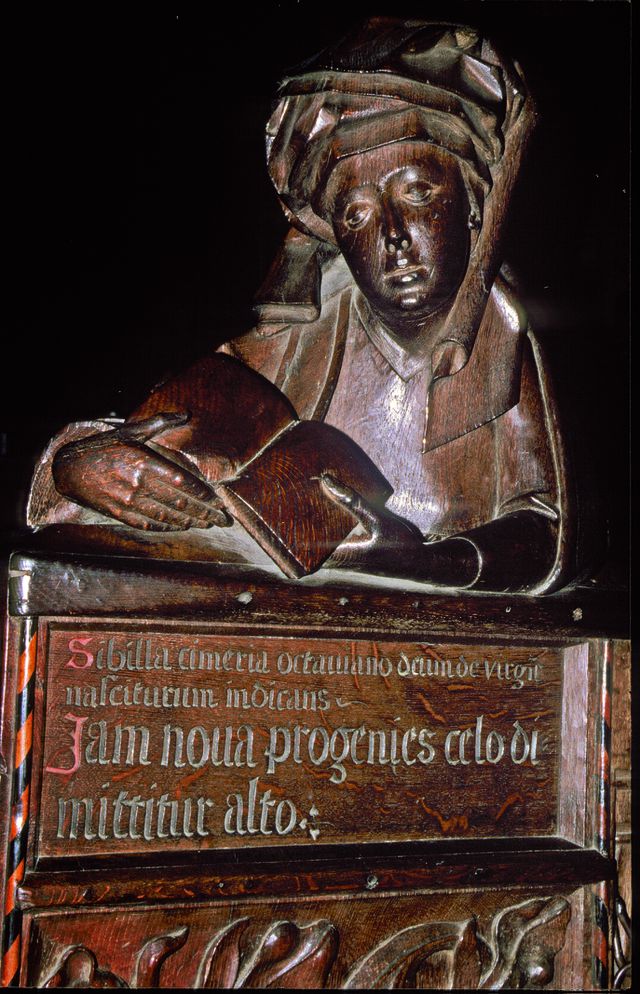 Sibilla cimeria octauiano deum de virgĩe
nasciturum indicans
Jam noua progenies celo di
mittitur alto